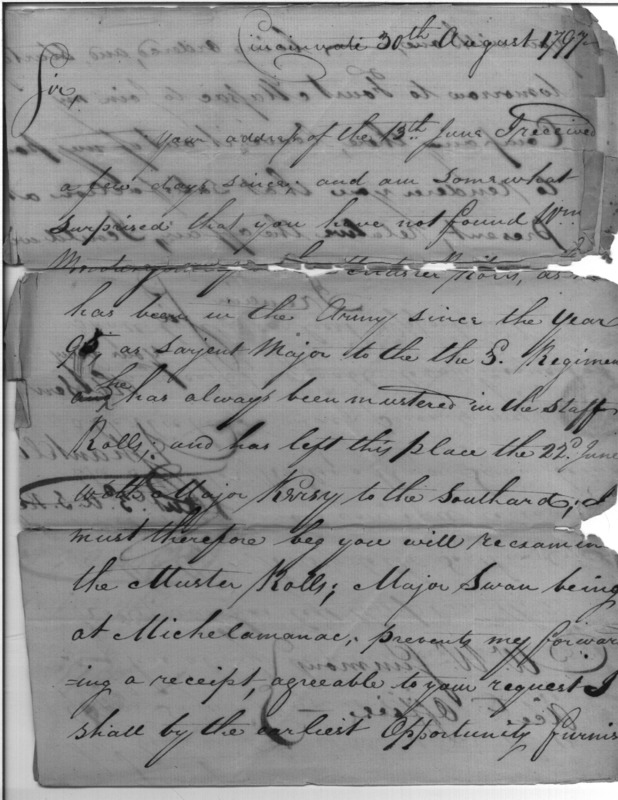 Cincinnati 30th August 1797
Sir,
your address of the 13th June I received
a few days since, and am somewhat
surprised that you have not found Wm
Muster Rolls, as
has been in the Army since the year
95 as Sarjent Major to the the 3. Regimen
and he has always been mustered in the Staff
Rolls; and has left this place the 22d June
with Major Kersey to the Southard; I
must therefore beg you will reexamin
the Muster Rolls; Major Swan being
at Michelamanac, prevents my forwar
=ing a receipt, agreeable to your request I
shall by the earliest Opportunity furnis